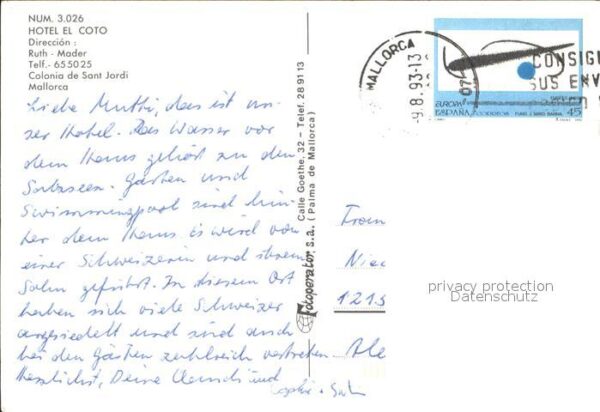 NUM. 3.026
HOTEL EL COTO
Dirección :
Ruth - Mader
Telf.- 655025
Colonia de Sant Jordi
Mallorca
Liebe Mutti, das ist un-
ser Hotel. Das Wasser vor
dem Haus gehört zu den
Salzseen. Garten und
Swimmingpool sind hin-
ter dem Haus. Es wird von
einer Schweizerin und ihrem
Sohn geführt. In diesem Ort
haben sich viele Schweizer
angesiedelt und sind auch
bei den Gästen zahlreich vertreten.
Herzlichst, Deine und
Fotoperator S.a. Calle Goethe, 32 - Telef. 28 9113
( Palma de Mallorca )
MALLORCA
-9.8.93-13
070
CONSIG
SUS ENV
EUROPA
ESPAÑA CORREOS 45
Frau
Nie
1215
Ale
privacy protection
Datenschutz